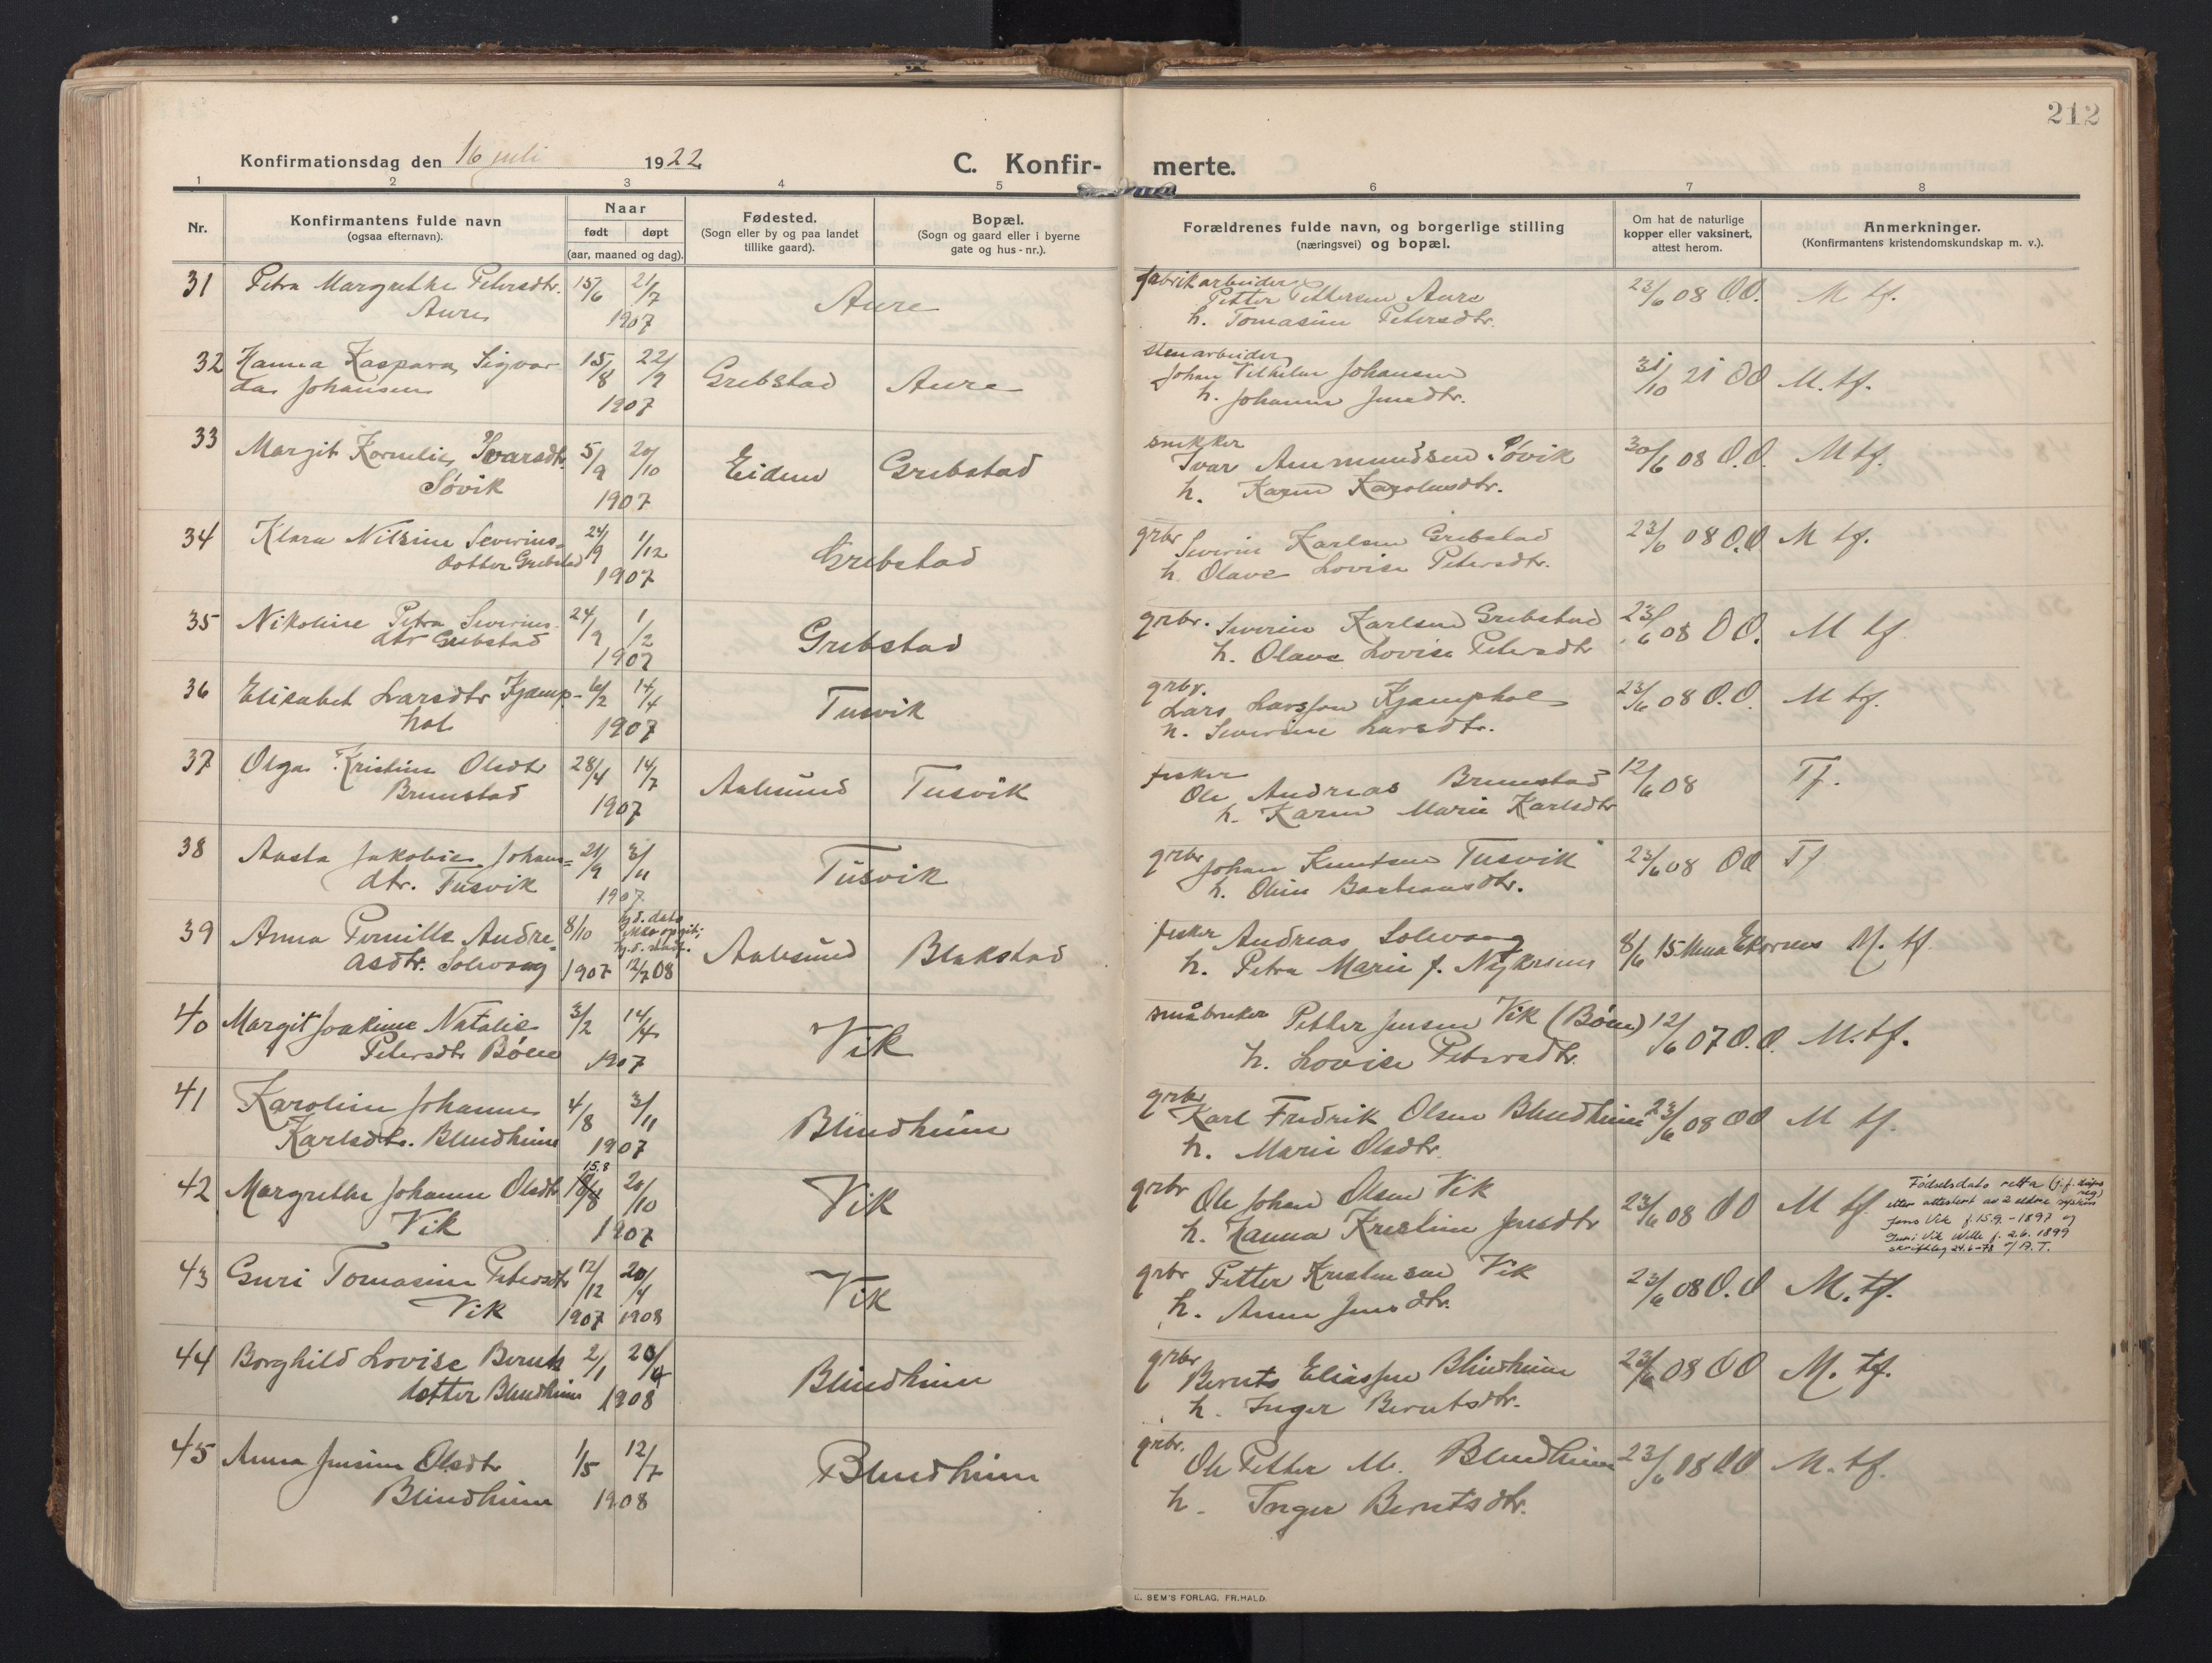 212
Konfirmationsdag den 16 juli 1922
C. Konfir- merte.
1 2 3 4 5 6 7 8
Nr.
Konfirmantens fulde navn
(ogsaa efternavn).
Naar
født døpt
(aar, maaned og dag).
Fødested.
(Sogn eller by og paa landet
tillike gaard).
Bopæl.
(Sogn og gaard eller i byerne
gate og hus-nr.).
Forældrenes fulde navn, og borgerlige stilling
(næringsvei) og bopæl.
Om hat de naturlige
kopper eller vaksinert,
attest herom.
Anmerkninger.
(Konfirmantens kristendomskundskap m. v.).
31 Petra Margrethe Petersdtr. 15/6 21/7 Aure fabrikarbeider 23/6 08 O.O. M tf.
Aure 1907 Petter Pettersen Aure
h. Tomasine Petersdtr.
32 Hanna Kaspara Sigvar- 15/8 22/9 Grebstad Aure stenarbeider 31/10 21 OO M. tf.
da Johansen 1907 Johan Vilhelm Johansen
h. Johanne Jensdtr.
33 Margit Kornelie Ivarsdtr. 5/9 20/10 Eidem Grebstad snekker 30/6 08 O.O. M tf.
Søvik 1907 Ivar Ammundsen Søvik
h. Karen Karolusdtr.
34 Klara Nilsine Severins- 24/9 1/12 Grebstad grbr Severin Karlsen Grebstad 23/6 08 O.O M tf.
dotter Grebstad 1907 h. Olave Lovise Petersdtr.
35 Nikoline Petra Severins- 24/9 1/12 Grebstad grbr. Severin Karlsen Grebstad 23/6 08 O O. M tf
dtr Grebstad 1907 h. Olave Lovise Petersdtr
36 Elisabet Larsdtr Kjæmp- 6/2 14/4 Tusvik grbr. 23/6 08 O.O. M tf.
hol 1907 Lars Larssen Kjæmphol
h. Severine Larsdtr.
37 Olga Kristine Olsdtr 28/4 14/7 Aalesund Tusvik fisker 12/6 08 Tf.
Brunstad 1907 Ole Andreas Brunstad
h. Karen Marie Karlsdtr
38 Aasta Jakobine Johans- 21/9 3/11 Tusvik grbr Johan Knutsen Tusvik 23/6 08 OO Tf
dtr. Tusvik 1907 h. Oline Bastiansdtr.
39 Anna Pernille Andre- 8/10 Aalesund Blakstad fisker Andreas Solevaag 8/6 15 M. tf.
asdtr. Solevaag 1907 12/7 08 h. Petra Marie f.
40 Margit Joakime Natalie 3/2 14/4 Vik småbruker Petter Jensen Vik (Bøen) 12/6 07 O.O. M. tf.
Petersdtr Bøen 1907 h. Lovise Petersdtr.
41 Karoline Johanne 4/8 3/11 Blindheim grbr 23/6 08 OO M tf.
Karlsdtr. Blindheim 1907 Karl Fredrik Olsen Blindheim
h. Marie Olsdtr.
15.8
42 Margrethe Johanne Olsdtr 18/8 20/10 Vik grbr Ole Johan Olsen Vik 23/6 08 OO M tf Fødselsdato retta (j.f. dåps
Vik 1907 h. Hanna Kristine Jensdtr reg)
etter attestert av 2 eldre sysken
Jens Vik f. 15.9.-1897 og
Guri Vik Welle f. 2.6. 1899
skriftleg 24.6-78 A.T.
43 Guri Tomasine Petersdtr 12/12 20/4 Vik grbr Petter Kristensen Vik 23/6 08 O.O M. tf.
Vik 1907 1908 h. Anne Jensdtr.
44 Borghild Lovise Bernts- 2/1 20/4 Blindheim grbr 23/6 08 OO M. tf.
dotter Blindheim 1908 Bernts Eliassen Blindheim
h. Inger Berntsdtr.
45 Anna Jensine Olsdtr 1/5 12/7 Blindheim grbr. Ole Petter M. Blindheim 23/6 08 OO M. tf.
Blindheim 1908 h. Inger Berntsdtr.
E. SEM'S FORLAG, FR.HALD.